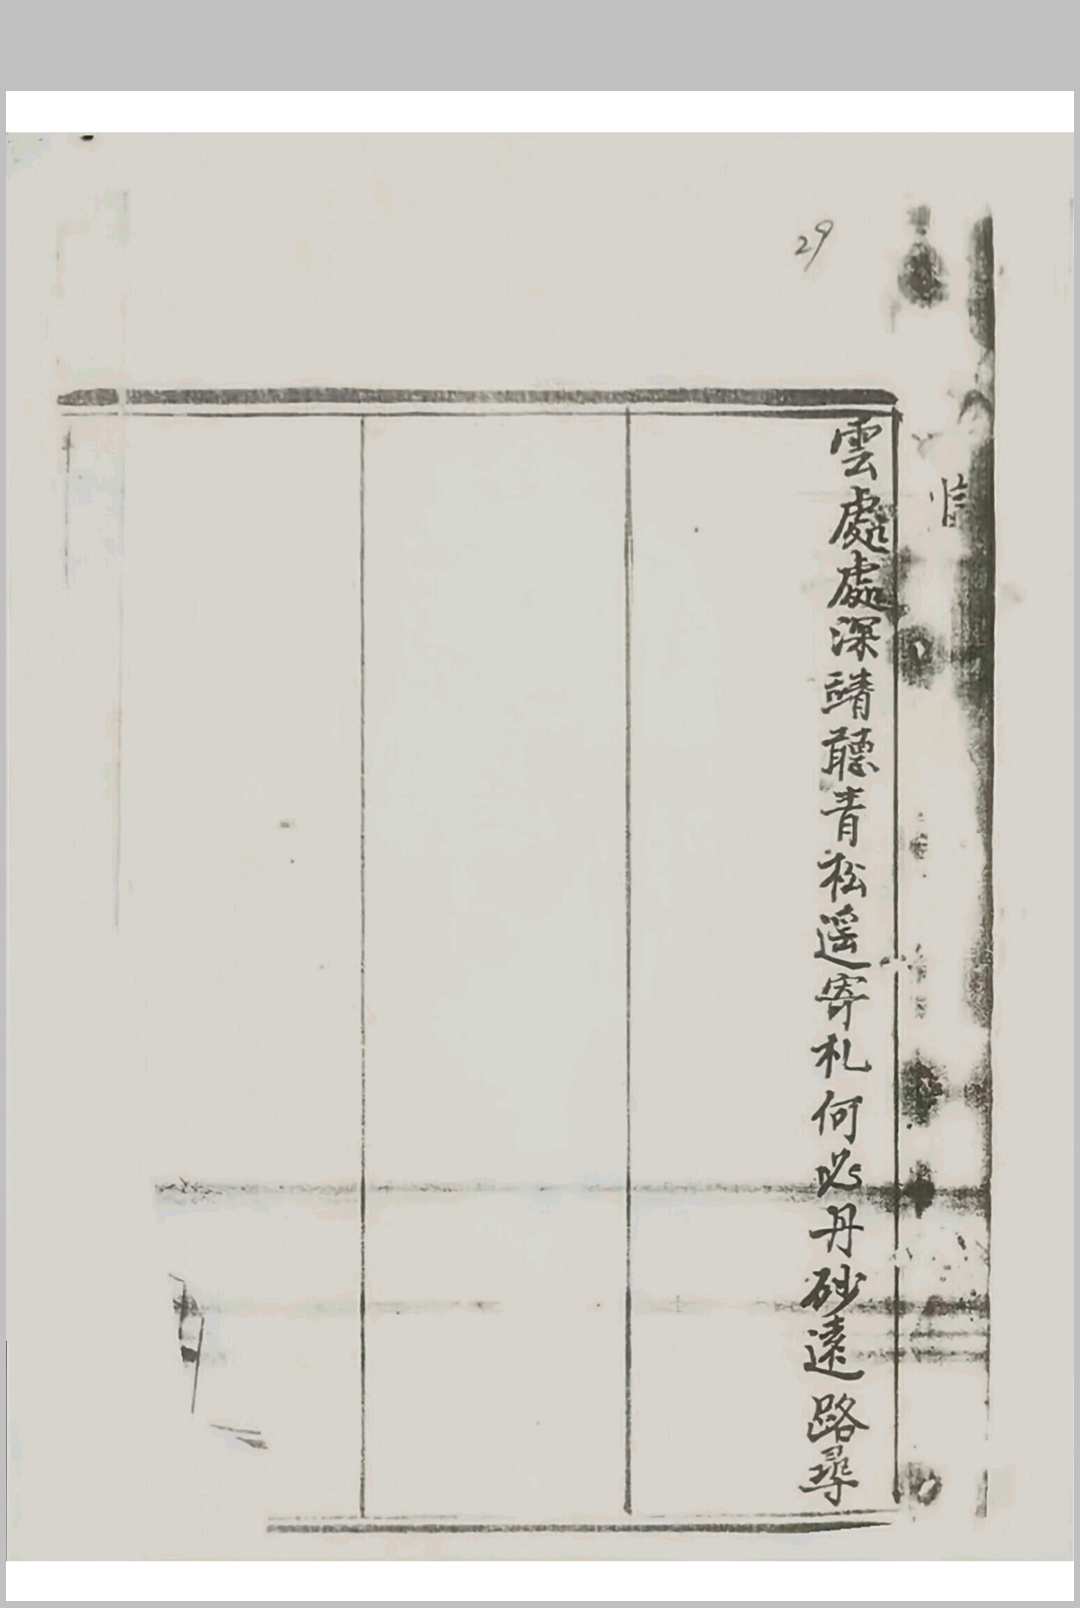 29
雲處處深
靖聽青松遥寄札何必丹砂遠路尋